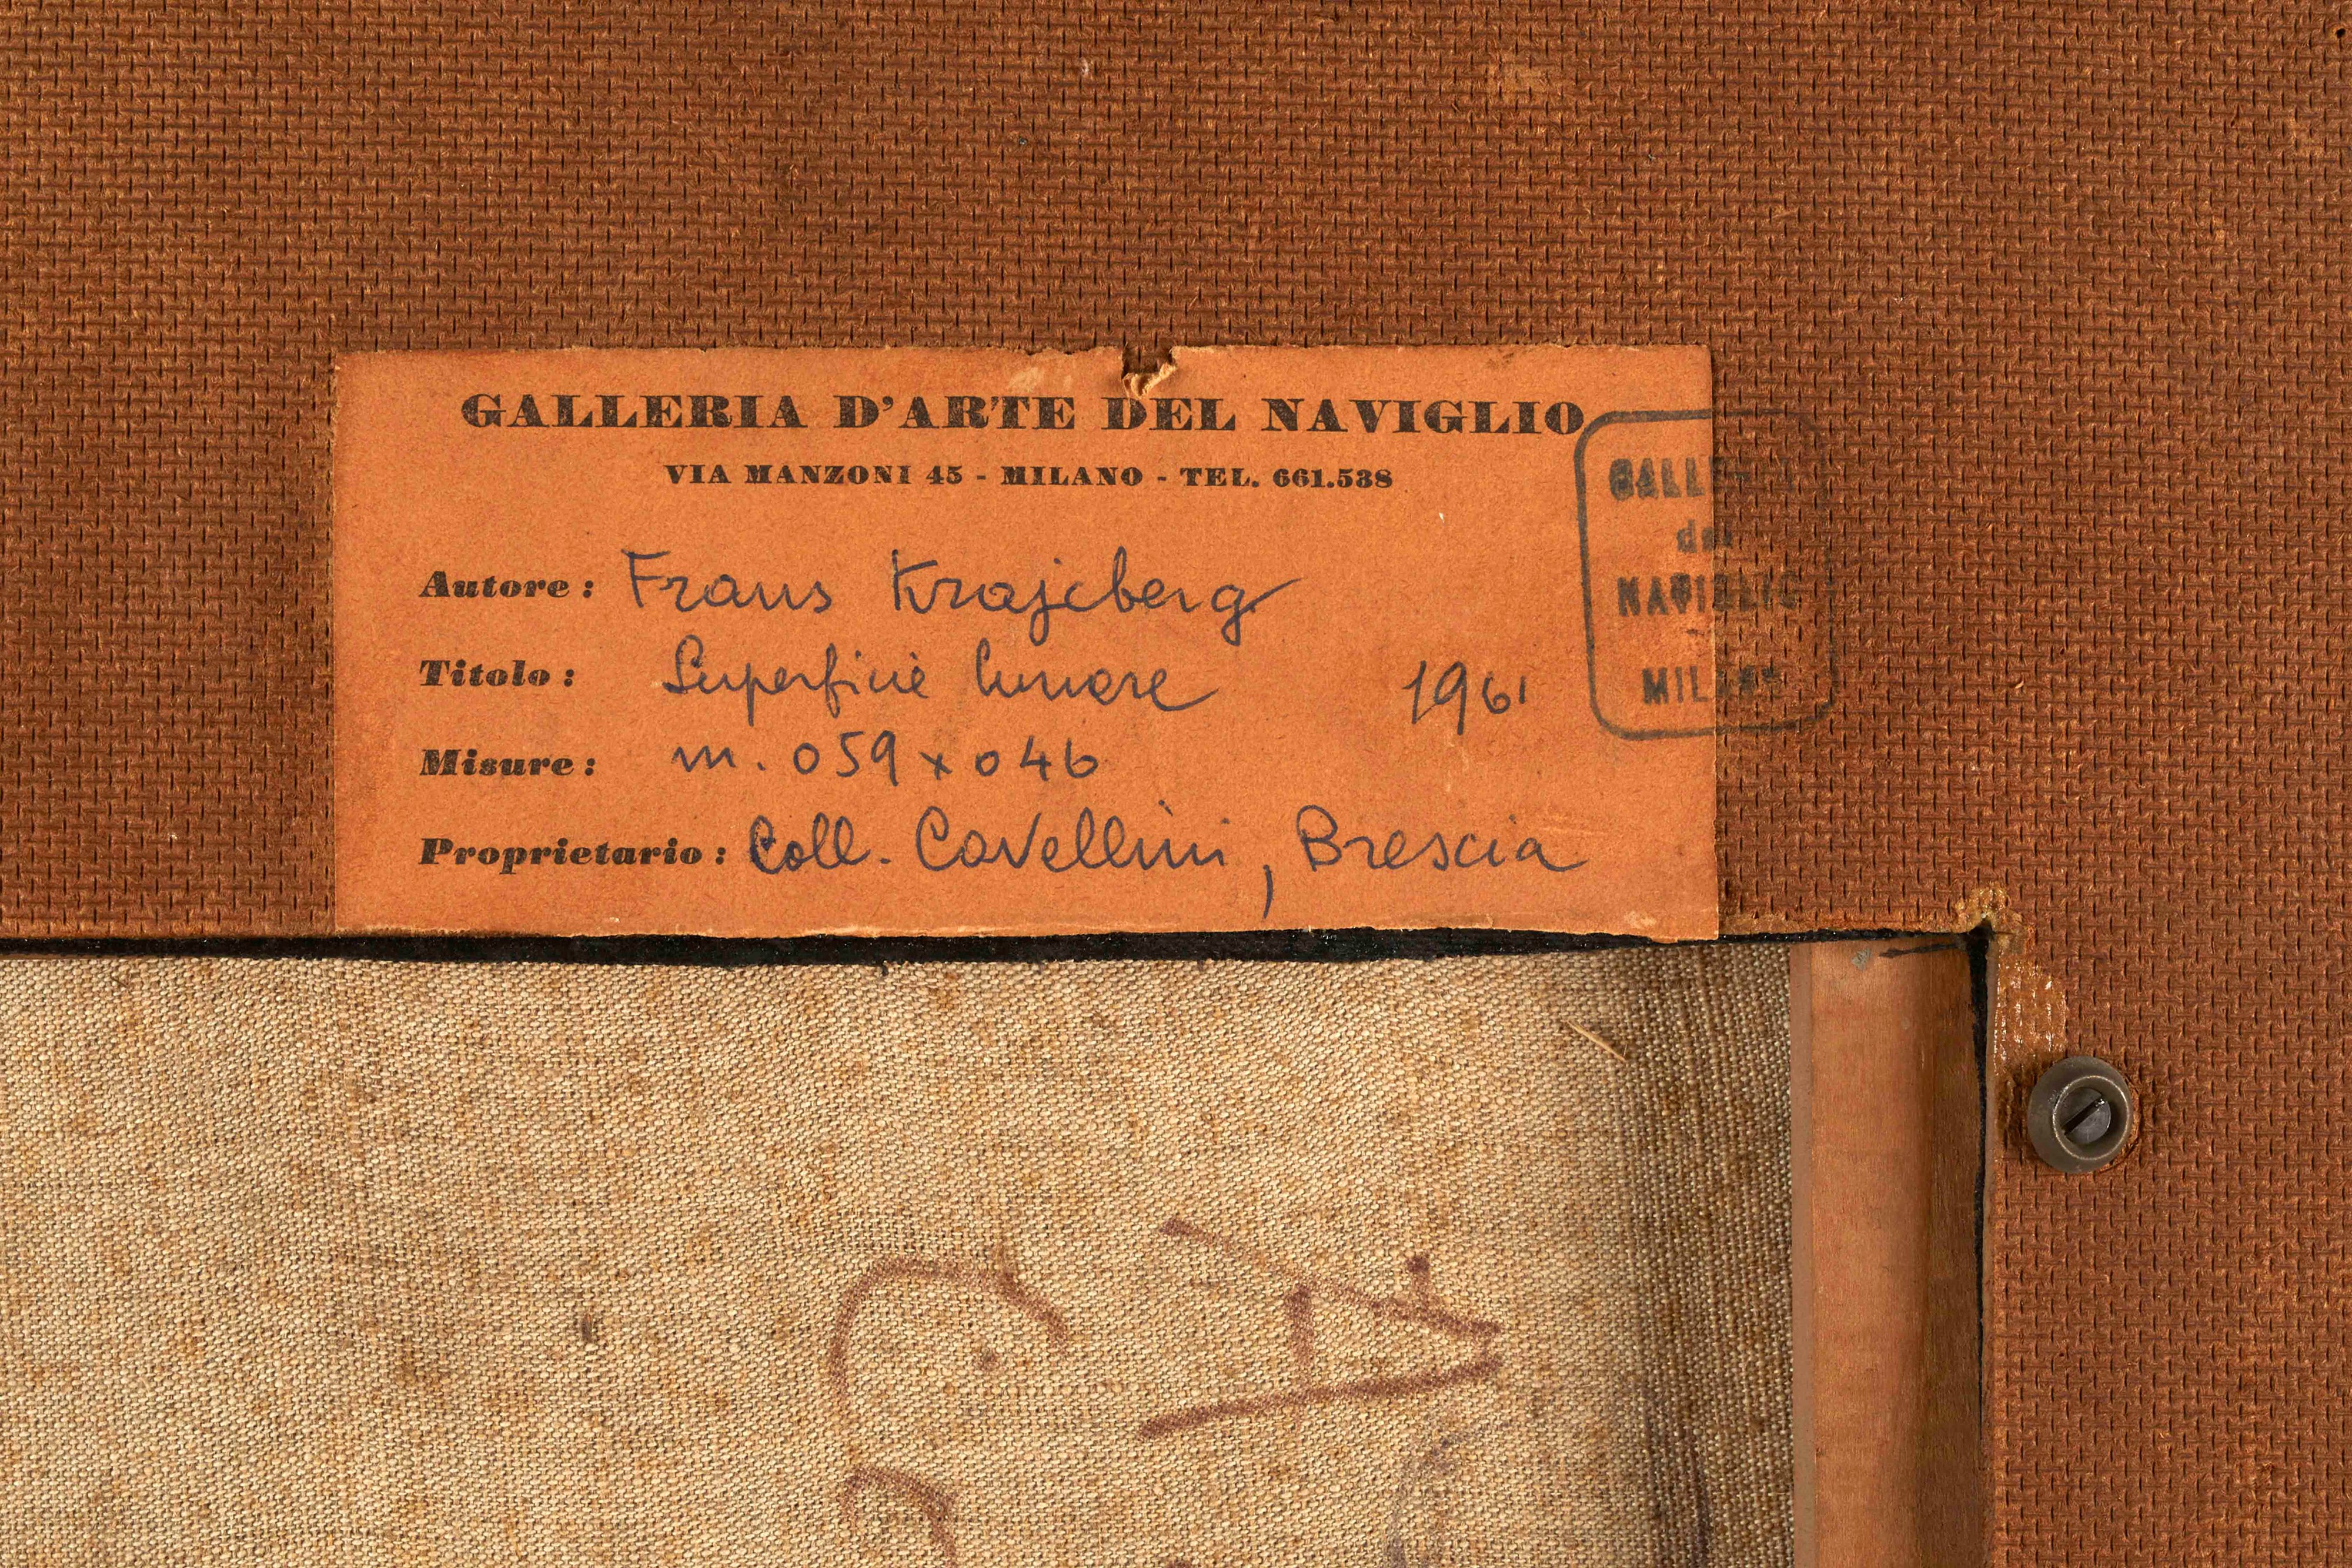 GALLERIA D'ARTE DEL NAVIGLIO
VIA MANZONI 45 - MILANO - TEL. 661.538
Autore: Frans Krajcberg
Titolo: Superficie lunare 1961
Misure: m. 059 x 046
Proprietario: Coll. Cavellini, Brescia
GALLE
del
NAVIGLIO
MILANO